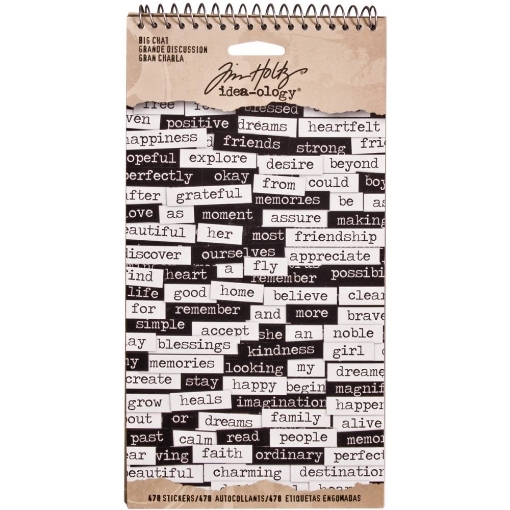 BIG CHAT
GRANDE DISCUSSION
GRAN CHARLA
Tim Holtz
idea-ology®
free blessed
ven positive dreams heartfelt
happiness friends strong frie
opeful explore desire beyond
perfectly okay from could boy
after grateful memories be as
love as moment assure making
eautiful her most friendship
discover ourselves appreciate
find heart a fly remember possibi
life good home believe clear
for remember and more brave
simple accept she an noble
ay blessings kindness girl
my memories looking my dreame
create stay happy begin magnif
grow heals imagination happen
out or dreams family alive
past calm read people memor
ear ving faith ordinary perfect
eautiful charming destination
478 STICKERS/478 AUTOCOLLANTS/478 ETIQUETAS ENGOMADAS